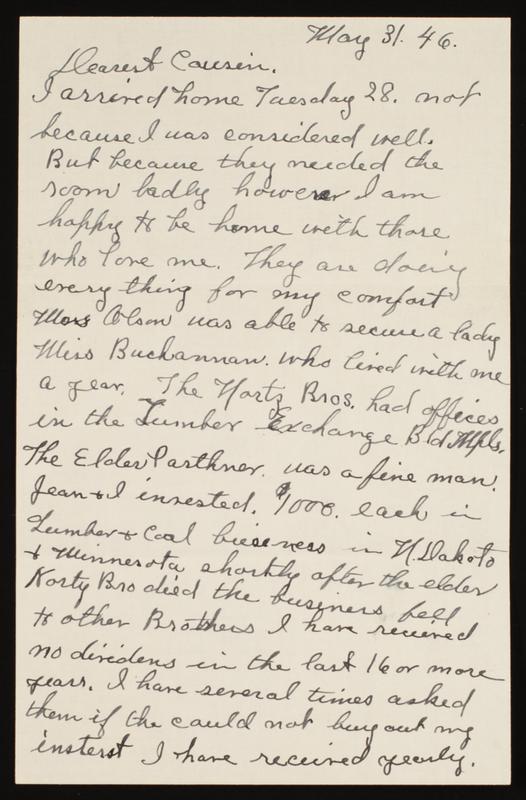 May 31. 46.
Dearest Cousin.
I arrived home Tuesday 28. not
because I was considered well.
But because they needed the
room badly however I am
happy to be home with those
who love me. They are doing
every thing for my comfort
Olson was able to secure a lady
Miss Buchannan. who lived with me
a year. The Hortz Bros. had offices
in the Lumber Exchange Bld Mpls.
The Elder Parthner. was a fine man.
Jean & I invested. $1000. each in
Lumber & Coal business in N. Dakota
& Minnesota shortly after the elder
Korty Bro died the business fell
to other Brothers I have recieved
no dividens in the last 16 or more
years. I have several times asked
them if the could not buy out my
insterst I have received yearly.